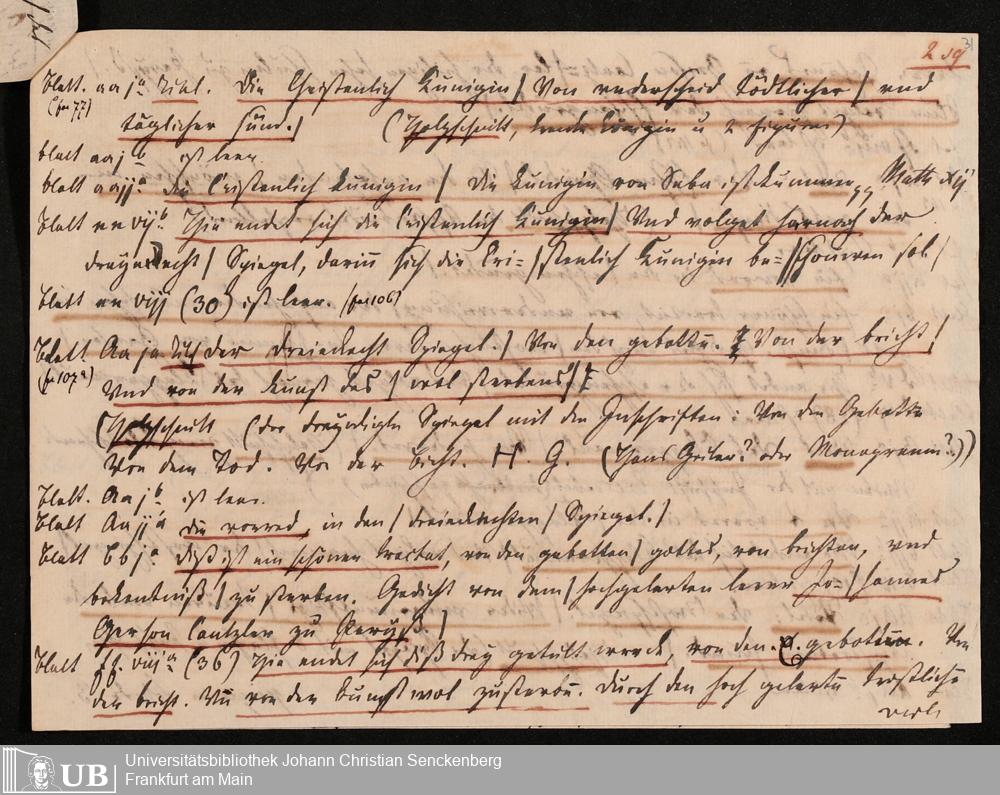 31
2 sq
blatt. aa jª Titel. Die Cristenlich Kunigin / Von underscheid tödtlicher / vnd
(fo 77)
täglicher sünd. / (Holzschnitt, beide Königin u 2 Figuren)
blatt aa j b ist leer.
blatt aa ij ª Die Cristenlich Kunigin / Die Kunigin von Saba ist kummen Math xij
blatt nn vij b. Hie endet sich die Cristenlich Kunigin / Vnd volget harnoch der
dreyeckecht / Spiegel, darinn sich die Cri= / stenlich Kunigin be= / schouwen sol /
blatt nn viij (30) ist leer. (fo 106)
blatt Aa jª Titel der dreieckecht Spiegel. / Von den gebottē. Von der bricht /
(fo 107ª)
Vnd von der kunst des / wol sterbens /
(Holzschnitt (der dreyeckigte Spiegel mit den Inschriften: Von den Gebotten
Von dem Tod. Von der bicht. H. G. (Hans Geiler? oder Monogramm?))
blatt. Aa j b. ist leer.
blatt Aa ij ª die vorred, in den / dreieckechten / Spiegel. /
blatt Bb j ª diß ist ein schöner tractat, von den gebotten / gottes, von beichten, vnd
bekentniß / zu sterben. Gedicht von dem / hochgelerten lerer Jo= / hannes
Gerson Cantzler zu Paryß. /
blatt ff viij ª (36) Hie endet sich diß drey geteilt werck, von den .x. gebotten. Von
der bricht. Vñ von der kunst wol zusterbē. Durch den hoch gelertē trostlichē
Universitätsbibliothek Johann Christian Senckenberg
UB
Frankfurt am Main